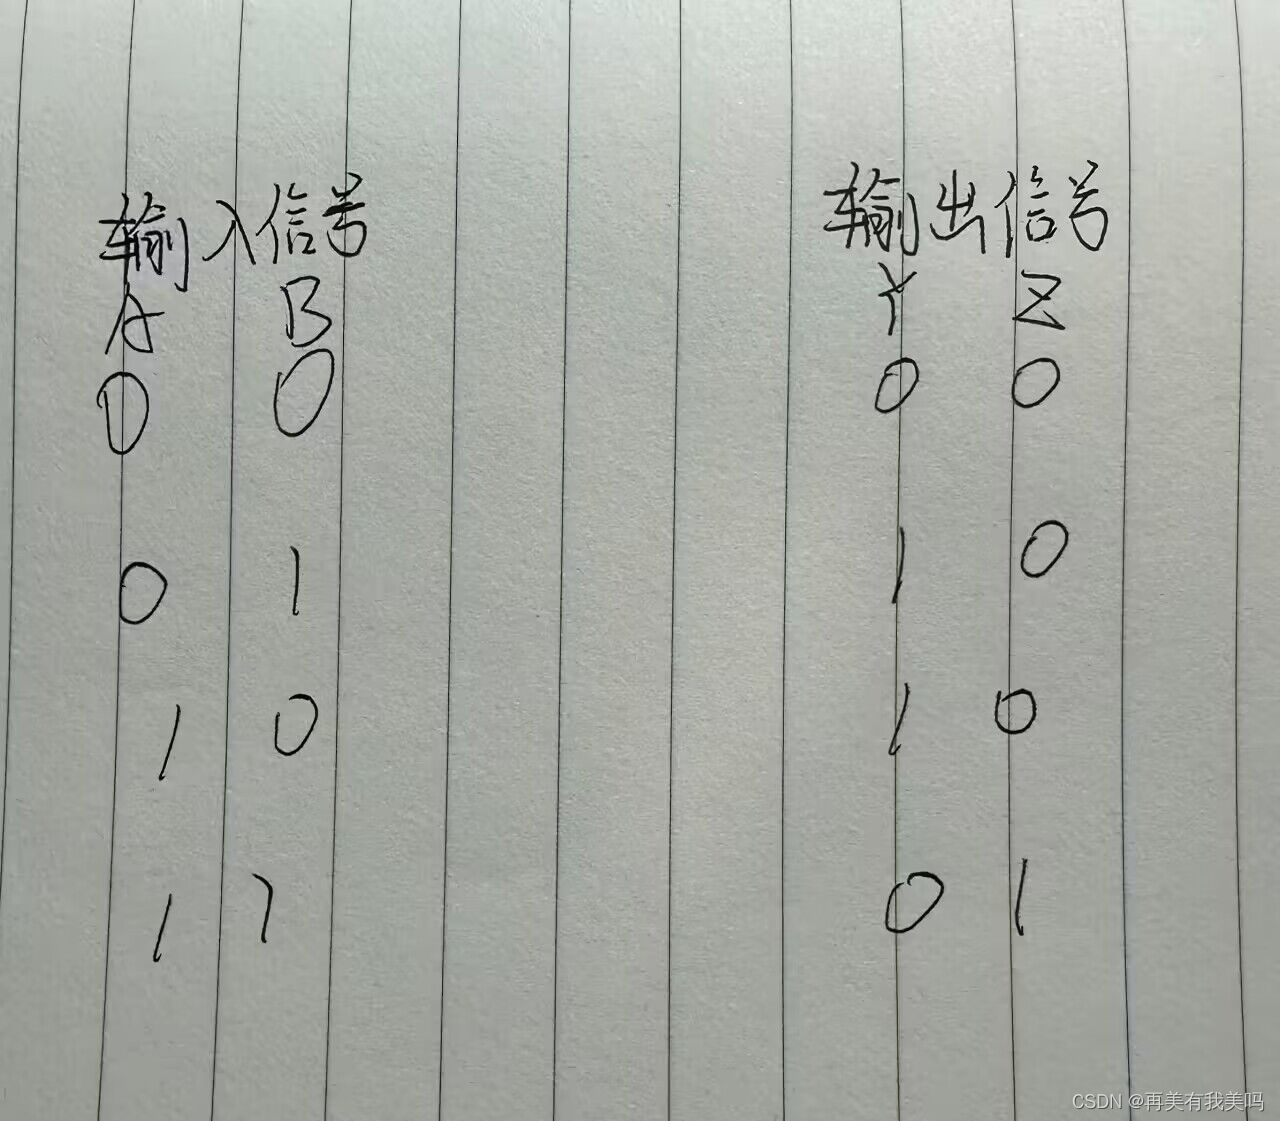 输入信号 输出信号
A B Y Z
0 0 0 0
0 1 1 0
1 0 1 0
1 1 0 1
CSDN @再美有我美吗